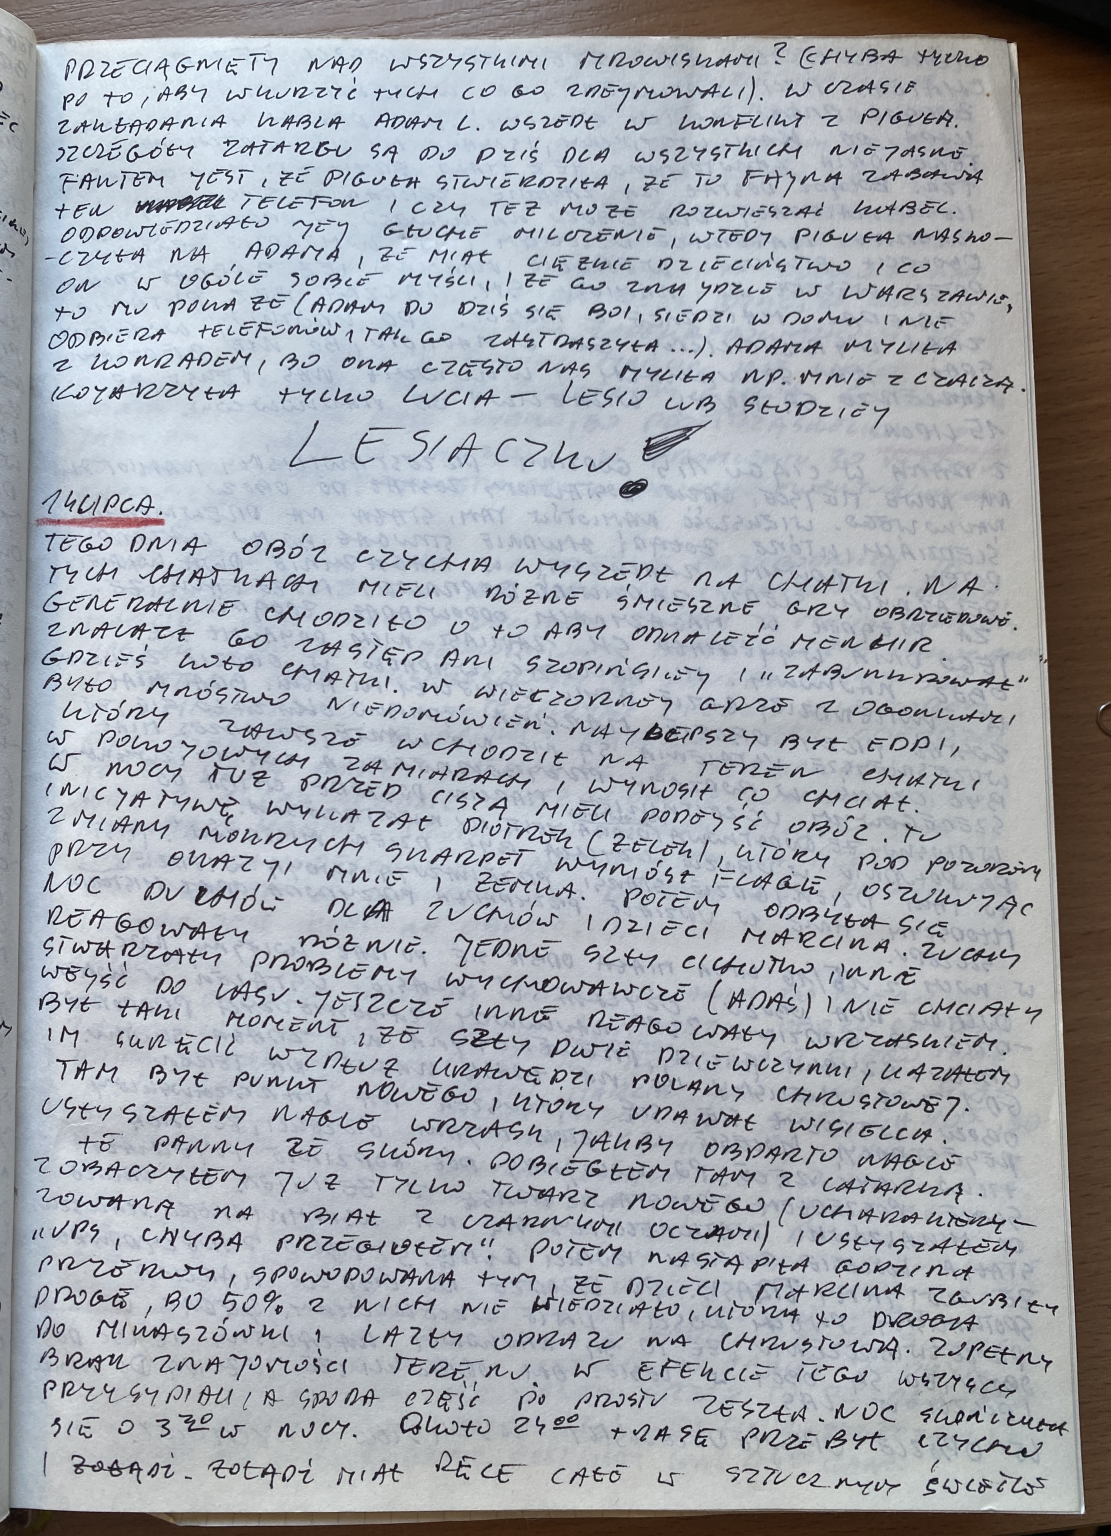 PRZECIĄGNIĘTY NAD WSZYSTKIMI MROWISKAMI? (CHYBA TYLKO
PO TO, ABY WKURZYĆ TYCH CO GO ZDEJMOWALI). W CZASIE
ZAKŁADANIA KABLA ADAM L. WSZEDŁ W KONFLIKT Z PIGUŁĄ.
SZCZEGÓŁY ZATARGU SĄ DO DZIŚ DLA WSZYSTKICH NIEJASNE.
FAKTEM JEST, ŻE PIGUŁA STWIERDZIŁA, ŻE TO FAJNA ZABAWA
TEN TELEFON I CZY TEŻ MOŻE ROZWIESZAĆ KABEL.
ODPOWIEDZIAŁO JEJ GŁUCHE MILCZENIE, WTEDY PIGUŁA NASKO-
-CZYŁA NA ADAMA, ŻE MIAŁ CIĘŻKIE DZIECIŃSTWO I CO
ON W OGÓLE SOBIE MYŚLI, I ŻE GO ZNAJDZIE W WARSZAWIE,
TO MU POKAŻE (ADAM DO DZIŚ SIĘ BOI, SIEDZI W DOMU I NIE
ODBIERA TELEFONÓW, TAK GO ZASTRASZYŁA...). ADAMA MYLIŁA
Z KONRADEM, BO ONA CZĘSTO NAS MYLIŁA NP. MNIE Z CZACZĄ.
KOJARZYŁA TYLKO LUCIA – LESIO LUB SŁODZIEJ
LESIACZKU!
14 LIPCA.
TEGO DNIA OBÓZ CZYCHA WYSZEDŁ NA CHATKI. NA
TYCH CHATKACH MIELI RÓŻNE ŚMIESZNE GRY OBRZĘDOWE.
GENERALNIE CHODZIŁO O TO ABY ODNALEŹĆ MENHIR.
ZNALAZŁ GO ZASTĘP ANI SZOPIŃSKIEJ I „ZABUNKROWAŁ"
GDZIEŚ KOŁO CHATKI. W WIECZORNEJ GRZE Z OGONKAMI
BYŁO MNÓSTWO NIEDOMÓWIEŃ. NAJLEPSZY BYŁ EDDI,
KTÓRY ZAWSZE WCHODZIŁ NA TEREN CHATKI
W POKOJOWYCH ZAMIARACH I WYNOSIŁ CO CHCIAŁ.
W NOCY TUŻ PRZED CISZĄ MIELI PODEJŚĆ OBÓZ. TU
INICJATYWĘ WYKAZAŁ PIOTREK (ZELEK), KTÓRY POD POZOREM
ZMIANY MOKRYCH SKARPET WYNIÓSŁ FLAGĘ, OSZUKUJĄC
PRZY OKAZJI MNIE I ZEMKA. POTEM ODBYŁA SIĘ
NOC DUCHÓW DLA ZUCHÓW I DZIECI MARCINA. ZUCHY
REAGOWAŁY RÓŻNIE. JEDNE SZŁY CICHUTKO, INNE
STWARZAŁY PROBLEMY WYCHOWAWCZE (ADAŚ) I NIE CHCIAŁY
WEJŚĆ DO LASU. JESZCZE INNE REAGOWAŁY WRZASKIEM.
BYŁ TAKI MOMENT, ŻE SZŁY DWIE DZIEWCZYNKI, KAZAŁEM
IM SKRĘCIĆ WZDŁUŻ KRAWĘDZI POLANY CHRUSTOWEJ.
TAM BYŁ PUNKT NOWEGO, KTÓRY UDAWAŁ WISIELCA.
USŁYSZAŁEM NAGLE WRZASK, JAKBY OBDARTO NAGLE
TE PANNY ZE SKÓRY. POBIEGŁEM TAM Z LATARKĄ.
ZOBACZYŁEM JUŻ TYLKO TWARZ NOWEGO (UCHARAKTERY-
ZOWANĄ NA BIAŁO Z CZARNYMI OCZAMI) I USŁYSZAŁEM
„UPS, CHYBA PRZEGIOŁEM". POTEM NASTĄPIŁA GODZINA
PRZERWY, SPOWODOWANA TYM, ŻE DZIECI MARCINA ZGUBIŁY
DROGĘ, BO 50% Z NICH NIE WIEDZIAŁO, KTÓRA TO DROGA
DO MIKASZÓWKI I LAZŁY ODRAZU NA CHRUSTOWĄ. ZUPEŁNY
BRAK ZNAJOMOŚCI TERENU. W EFEKCIE TEGO WSZYSCY
PRZYSYPIALI, A SPORA CZĘŚĆ PO PROSTU ZESZŁA. NOC SKOŃCZYŁA
SIĘ O 3 30 W NOCY. OKOŁO 24 00 TRASĘ PRZEBYŁ CZYCHU
I ŻOŁĄDŹ. ŻOŁĄDŹ MIAŁ RĘCE CAŁE W SZTUCZNYM ŚWIETLE